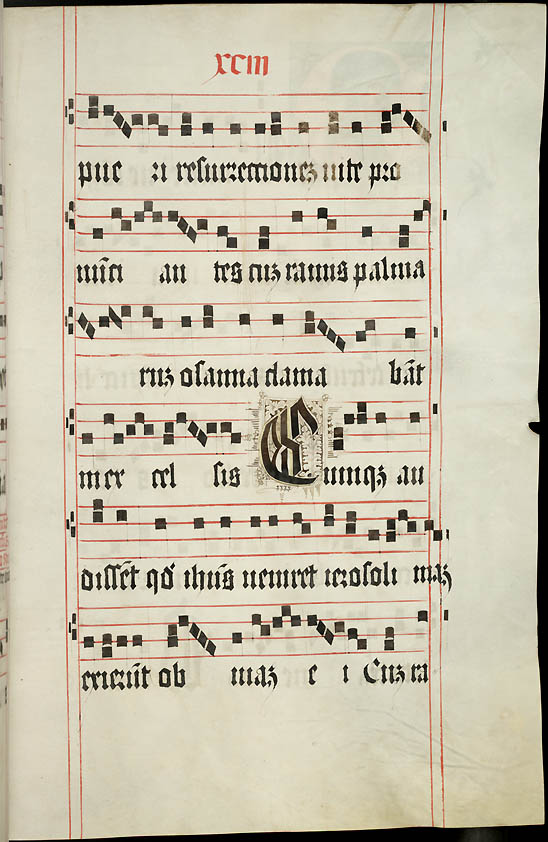 xciii
pue ri resurrectionez uite pro
nūci an tes cuz ramis palma
ruz osanna clama bāt
in ex cel sis Cumqz au
dissēt qđ ihūs ueniret ierosoli maz
exierūt ob uiaz e i Cuz ra